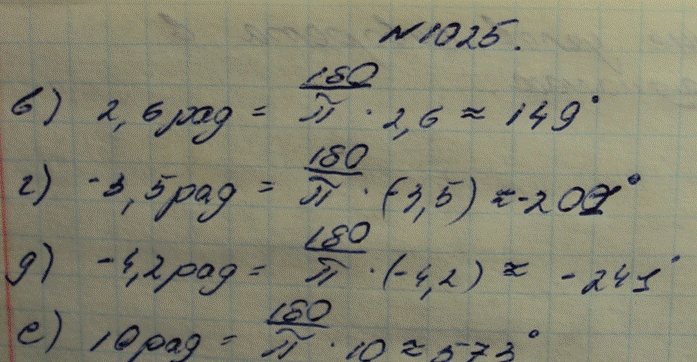 №1025.
в) 2,6 рад = 180/π · 2,6 ≈ 149°
г) -3,5 рад = 180/π · (-3,5) ≈ -201°
д) -4,2 рад = 180/π · (-4,2) ≈ -241°
е) 10 рад = 180/π · 10 ≈ 573°